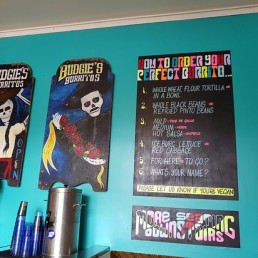 BUDGIE'S
BURRITOS
OPEN
BUDGIE'S
BURRITOS
HOW TO ORDER YOUR
PERFECT BURRITO...
1. WHOLE WHEAT FLOUR TORTILLA OR
IN A BOWL
2. WHOLE BLACK BEANS OR
REFRIED PINTO BEANS
3. MILD
MEDIUM
HOT SALSA
4. ICEBURG LETTUCE OR
RED CABBAGE
5. FOR HERE OR TO GO?
6. WHAT'S YOUR NAME?
PLEASE LET US KNOW IF YOU'RE VEGAN
MORE SEATING
DOWNSTAIRS